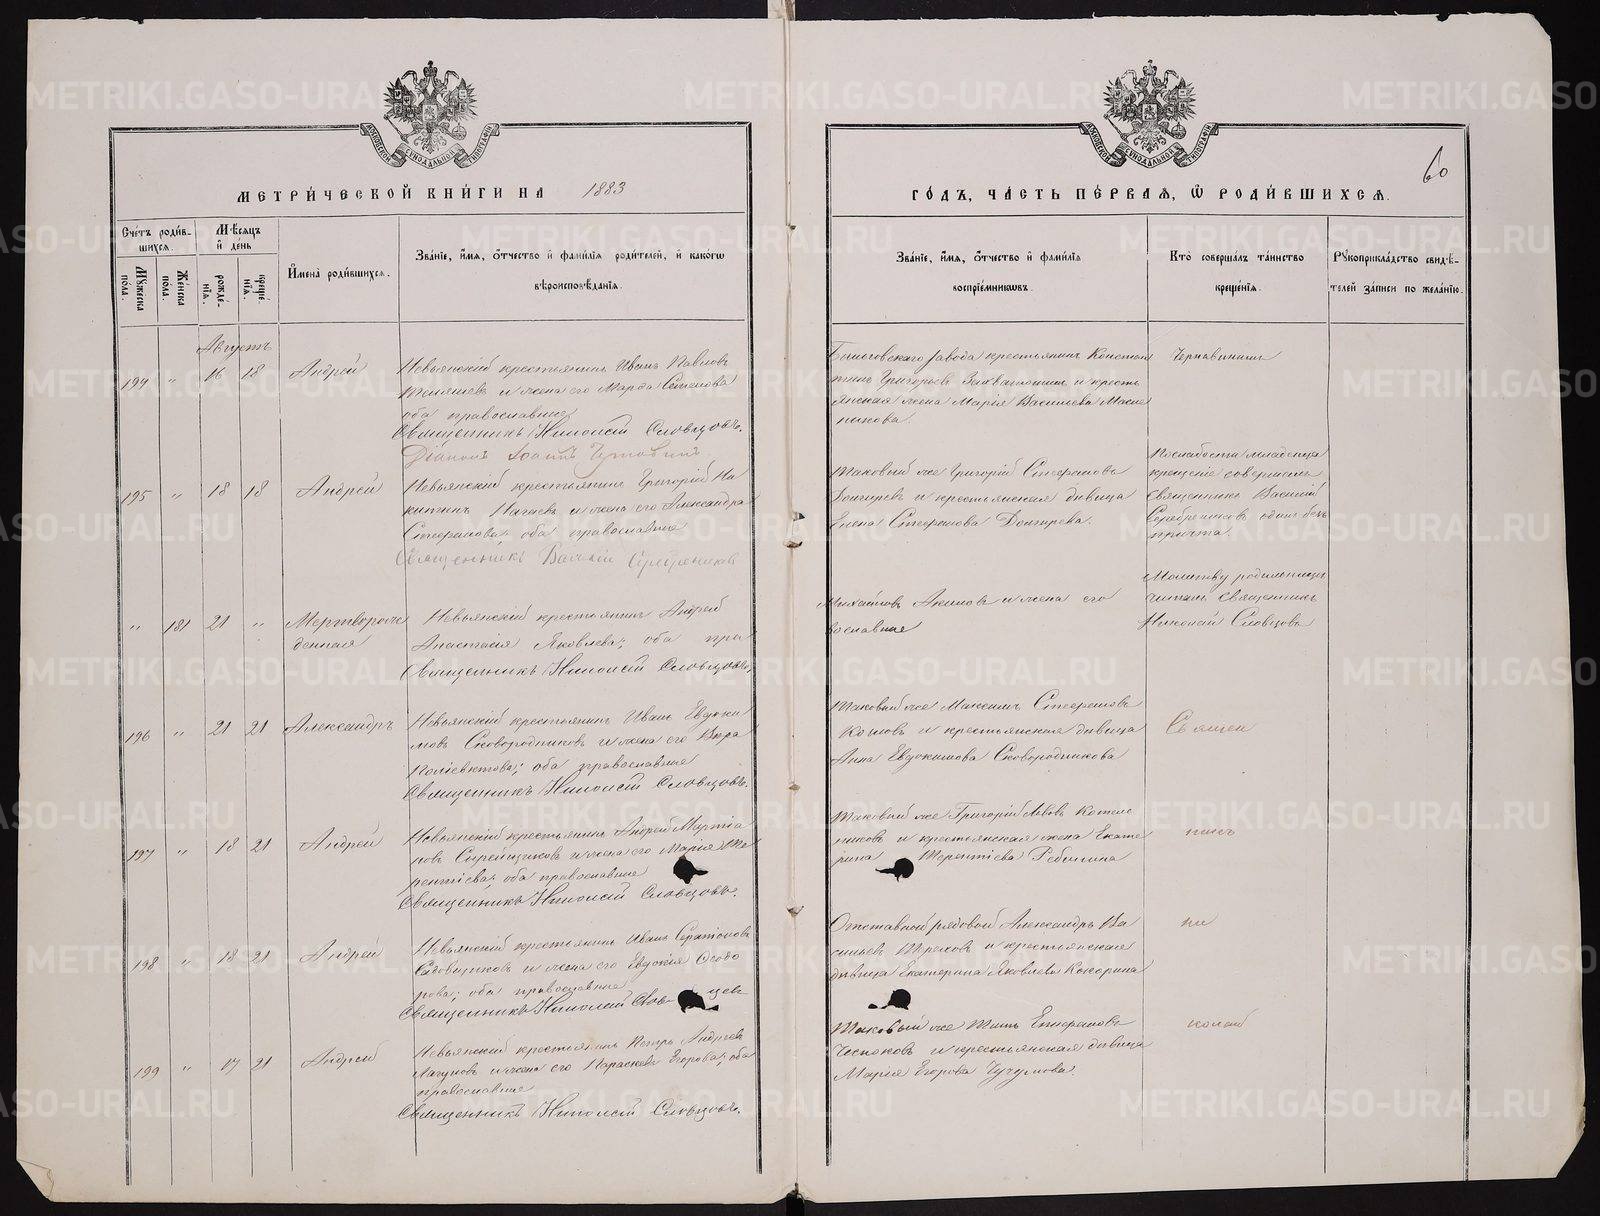 МОСКОВСКОЙ СУНОДАЛЬНОЙ ТИПОГРАФІИ
МОСКОВСКОЙ СУНОДАЛЬНОЙ ТИПОГРАФІИ
60
МЕТРИ́ЧЕСКОЙ КНИ́ГИ НА 1883
ГО́ДЪ, ЧА́СТЬ ПЕ́РВАЯ, Ѿ РОДИ́ВШИХСЯ.
Сче́тъ роди́в-
шихся.
Му́жеска пола.
Же́нска пола.
Мѣ́сяцъ
и҆ день
рожде́-
нїя.
креще́-
нїя.
И҆мена̀ роди́вшихся.
Зва́нїе, и҆́мя, ѻ҆́тчество и҆ фами́лїя роди́телей, и҆ како́гѡ
вѣроисповѣ́данїя.
Зва́нїе, и҆́мя, ѻ҆́тчество и҆ фами́лїя
воспрїе́мникѡвъ.
Кто̀ соверша́лъ та́инство
креще́нїя.
Рꙋкоприкла́дство свидѣ́-
телей за́писи по жела́нїю.
Августъ
194 " 16 18 Андрей
Невьянскій крестьянинъ Иванъ Павловъ
и жена его Марѳа Семенова
оба православные
Священникъ Николай Словцовъ.
Діаконъ Іоаннъ
завода крестьянинъ Констан
тинъ Григорьевъ и кресть
янская жена Марія Васильева Масле
никова.
195 " 18 18 Андрей
Невьянскій крестьянинъ Григорій Ни
китинъ и жена его Александра
Стефанова; оба православные
Священникъ Василій Серебренниковъ
Таковый же Григорій Стефановъ
и крестьянская дѣвица
Елена Стефанова
По слабости младенца
крещеніе совершилъ
Священникъ Василій
Серебренниковъ одинъ безъ
причта.
" 181 21 " Мертворож
денная
Невьянскій крестьянинъ Андрей
Анастасія Яковлева; оба пра
Священникъ Николай Словцовъ,
Михайловъ Акиловъ и жена его
вославные
Молитву родильницы
читалъ Священникъ
Николай Словцовъ
196 " 21 21 Александръ
Невьянскій крестьянинъ Иванъ Евдоки
мовъ Сковородниковъ и жена его Вѣра
Поліевктова; оба православные
Священникъ Николай Словцовъ.
Таковый же Максимъ Стефановъ
и крестьянская дѣвица
Анна Евдокимова Сковородникова
Священ
197 " 18 21 Андрей
Невьянскій крестьянинъ Андрей Мартіа
новъ Сырейщиковъ и жена его Марія Те
рентіева; оба православные
Священникъ Николай Словцовъ.
Таковый же Григорій Львовъ Котель
никовъ и крестьянская жена Екате
рина Терентіева
никъ
198 " 18 21 Андрей
Невьянскій крестьянинъ Иванъ Серапіоновъ
Садовщиковъ и жена его Евдокія Ѳедо
рова; оба православные
Священникъ Николай Слов
Отставной рядовой Александръ Ва
сильевъ Тереховъ и крестьянская
дѣвица Екатерина Яковлева Кокорина
ни
199 " 17 21 Андрей
Невьянскій крестьянинъ Петръ Андреевъ
Лагуновъ и жена его Параскева Егорова; оба
православные
Священникъ Николай Словцовъ.
Таковый же Титъ Епифановъ
Чесноковъ и крестьянская дѣвица
Марія Егорова Чучумова.
колай
METRIKI.GASO-URAL.RU